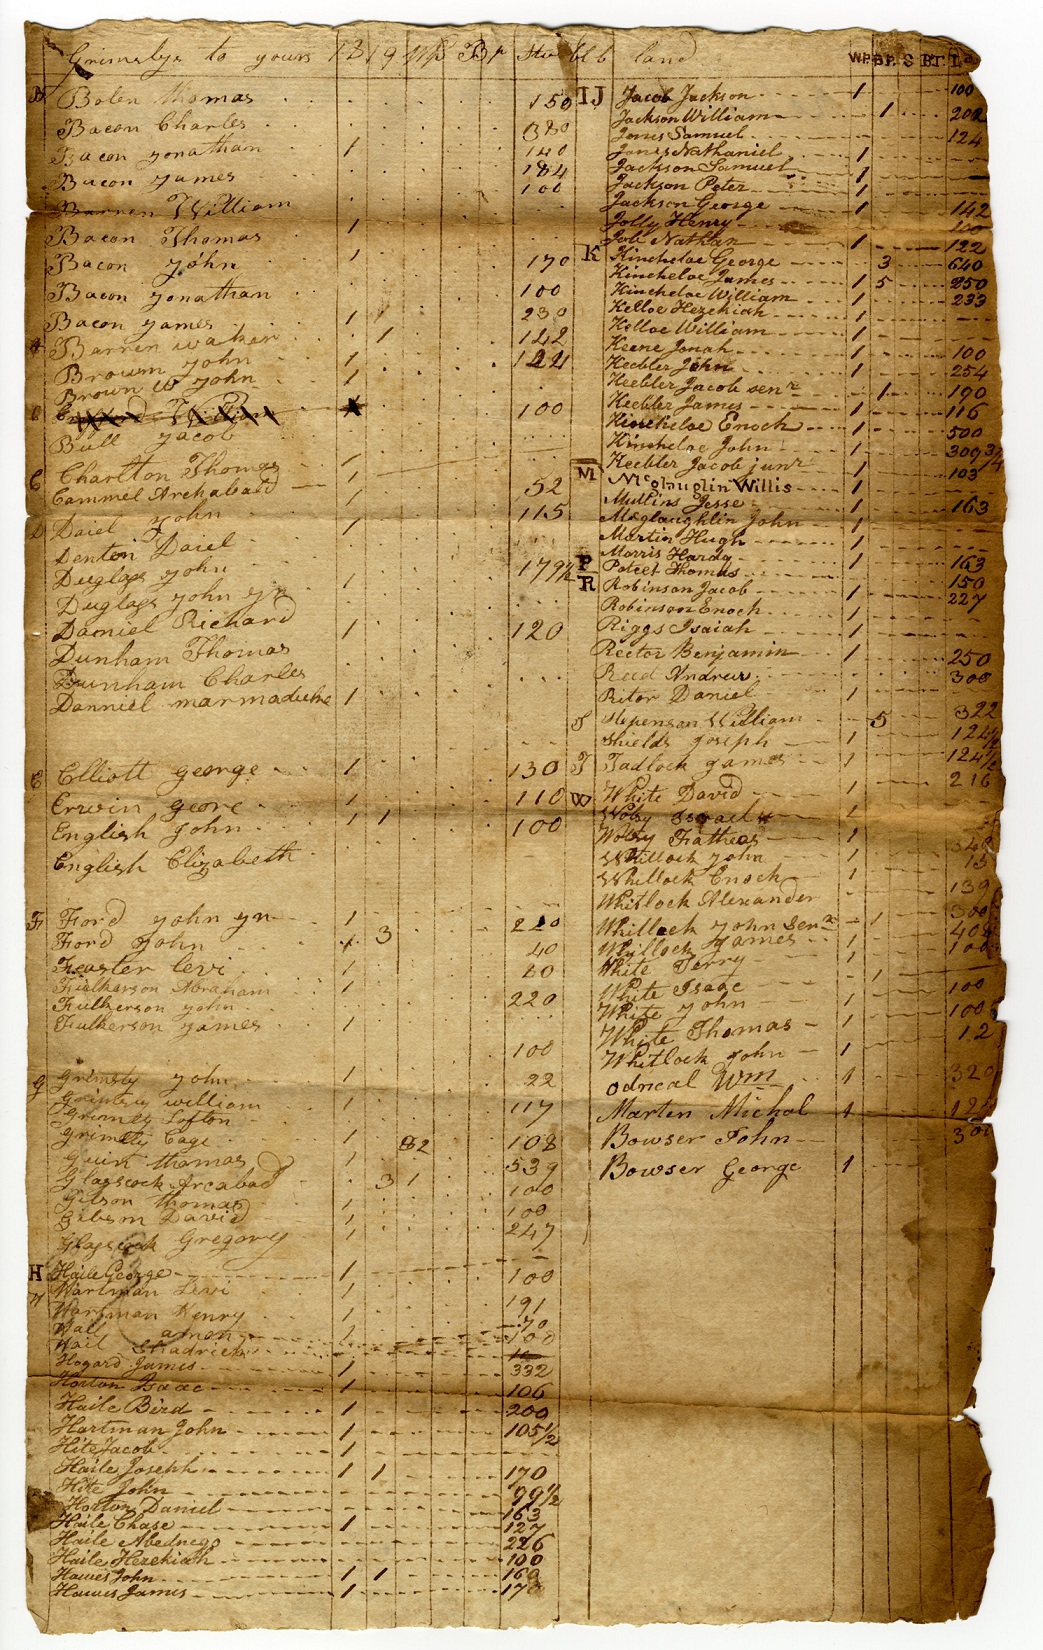 Grimsbys to yours 1819 Wp Bp Stu tb b land
B Bolen Thomas 150
Bacon Charles 380
Bacon Jonathan 1 140
Bacon James 184
Barren William 100
Bacon Thomas 1
Bacon John 1 170
Bacon Jonathan 100
Bacon James 1 230
Barren Walker 1 142
Browm John 1 124
Brown W John 1
William 100
Bull Jacob
C Charlton Thomas 1
Cammel Archabald 1 52
D Daiel John 1 115
Denton Daiel
Duglass John 179½
Duglass John Jn 1
Damiel Richard
Dunham Thomas 1 120
Dunham Charles
Danniel marmaduke 1
E Elliott George 1 130
Erwin Geore 1 110
English John 1 1 100
English Elizabeth
F Ford John Jn 1 220
Ford John 1 3 40
Feaster Levi 1 80
Fulkerson Abraham 1 220
Fulkerson John
Fulkerson James 1
100
G Grimsty John 1 22
William 1 117
Grimsty Lofton
Grimsty Eage 1 82 108
Quirk Thomas 1 539
Glasscock Arcabad 3 1 100
Gibson Thomas 1 100
Gibsm David 1 247
Glasscock Gregory 1
H Haile George 1 100
Hartman Levi 1 191
Hartman Henry 1 70
Hall amon 1 100
Hail Shadrick
Hogard James 1 332
Horton Isaac 1 106
Haile Bird 1 200
Hartman John 1 105½
Hite Jacob 1
Haile Joseph 1 1 170
Hite John 99½
Horton Daniel 163
Haile Chase 1 127
Haile Abednego 226
Haile Hezekiah 100
Hawes John 1 1 160
Hawes James 1 170
WP BP S BT La
IJ Jacob Jackson 1 100
Jackson William 1 202
Jones Samuel 124
Jones Nathaniel 1
Jackson Samuel 1
Jackson Peter 1
Jackson George 1 142
Jolly Henry 100
Job Nathan 1 122
K Kincheloe George 3 640
Kincheloe James 1 5 250
Kincheloe William 1 233
Kelloe Hezekiah 1
Kelloe William 1
Keene Jonah 100
Keebler John 1 254
Keebler Jacob senr 1 190
Keebler James 1 116
Kincheloe Enoch 1 500
Kincheloe John 1 309 3/4
Keebler Jacob junr 1 103
M McGlauglin Willis 1
Mullins Jesse 1 163
McGlaughlin John 1
Martin Hugh 1
Morris Hardy 1 163
P Poteet Thomas 150
R Robinson Jacob 1 227
Robinson Enoch 1
Riggs Isaiah 1
Rector Benjamin 1 250
Reed Andrew 300
Ritor Daniel 1
S Stepenson William 5 322
Shields Joseph 1 124½
T Tadlock James 1 124½
W White David 1 216
Wolsy Israel 1
Wolsy Fatheas 1
Whitlock John 1 13
Whitlock Enoch 1 139
Whitlock Alexander 300
Whitlock John Senr 1 408
Whitlock James 1 100
White Terry 1
White Isaac 1 100
White John 1 100
White Thomas 1 12
Whitlock John 1
odneal Wm 1 320
Marten Michal 1 12
Bowser John 30
Bowser George 1